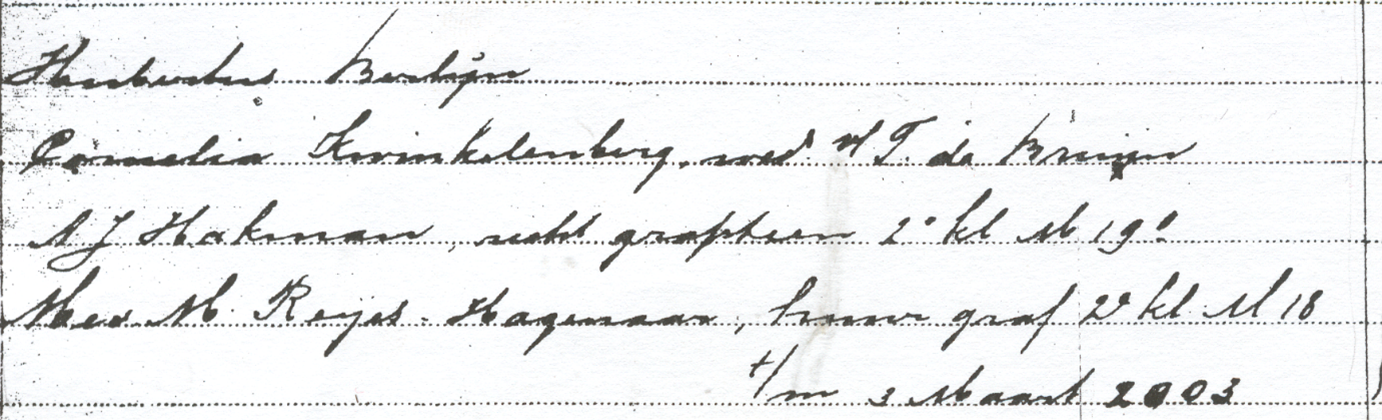 Hubertus Berlijn
Cornelia Kwinkelenberg, wed. v/ T. de Bruijn
A J Hakman, recht grafsteen 2e kl M 19
Mev. M. Reijes - Hagenaar, huur graf 2e kl M 18
t/m 3 Maart 2003